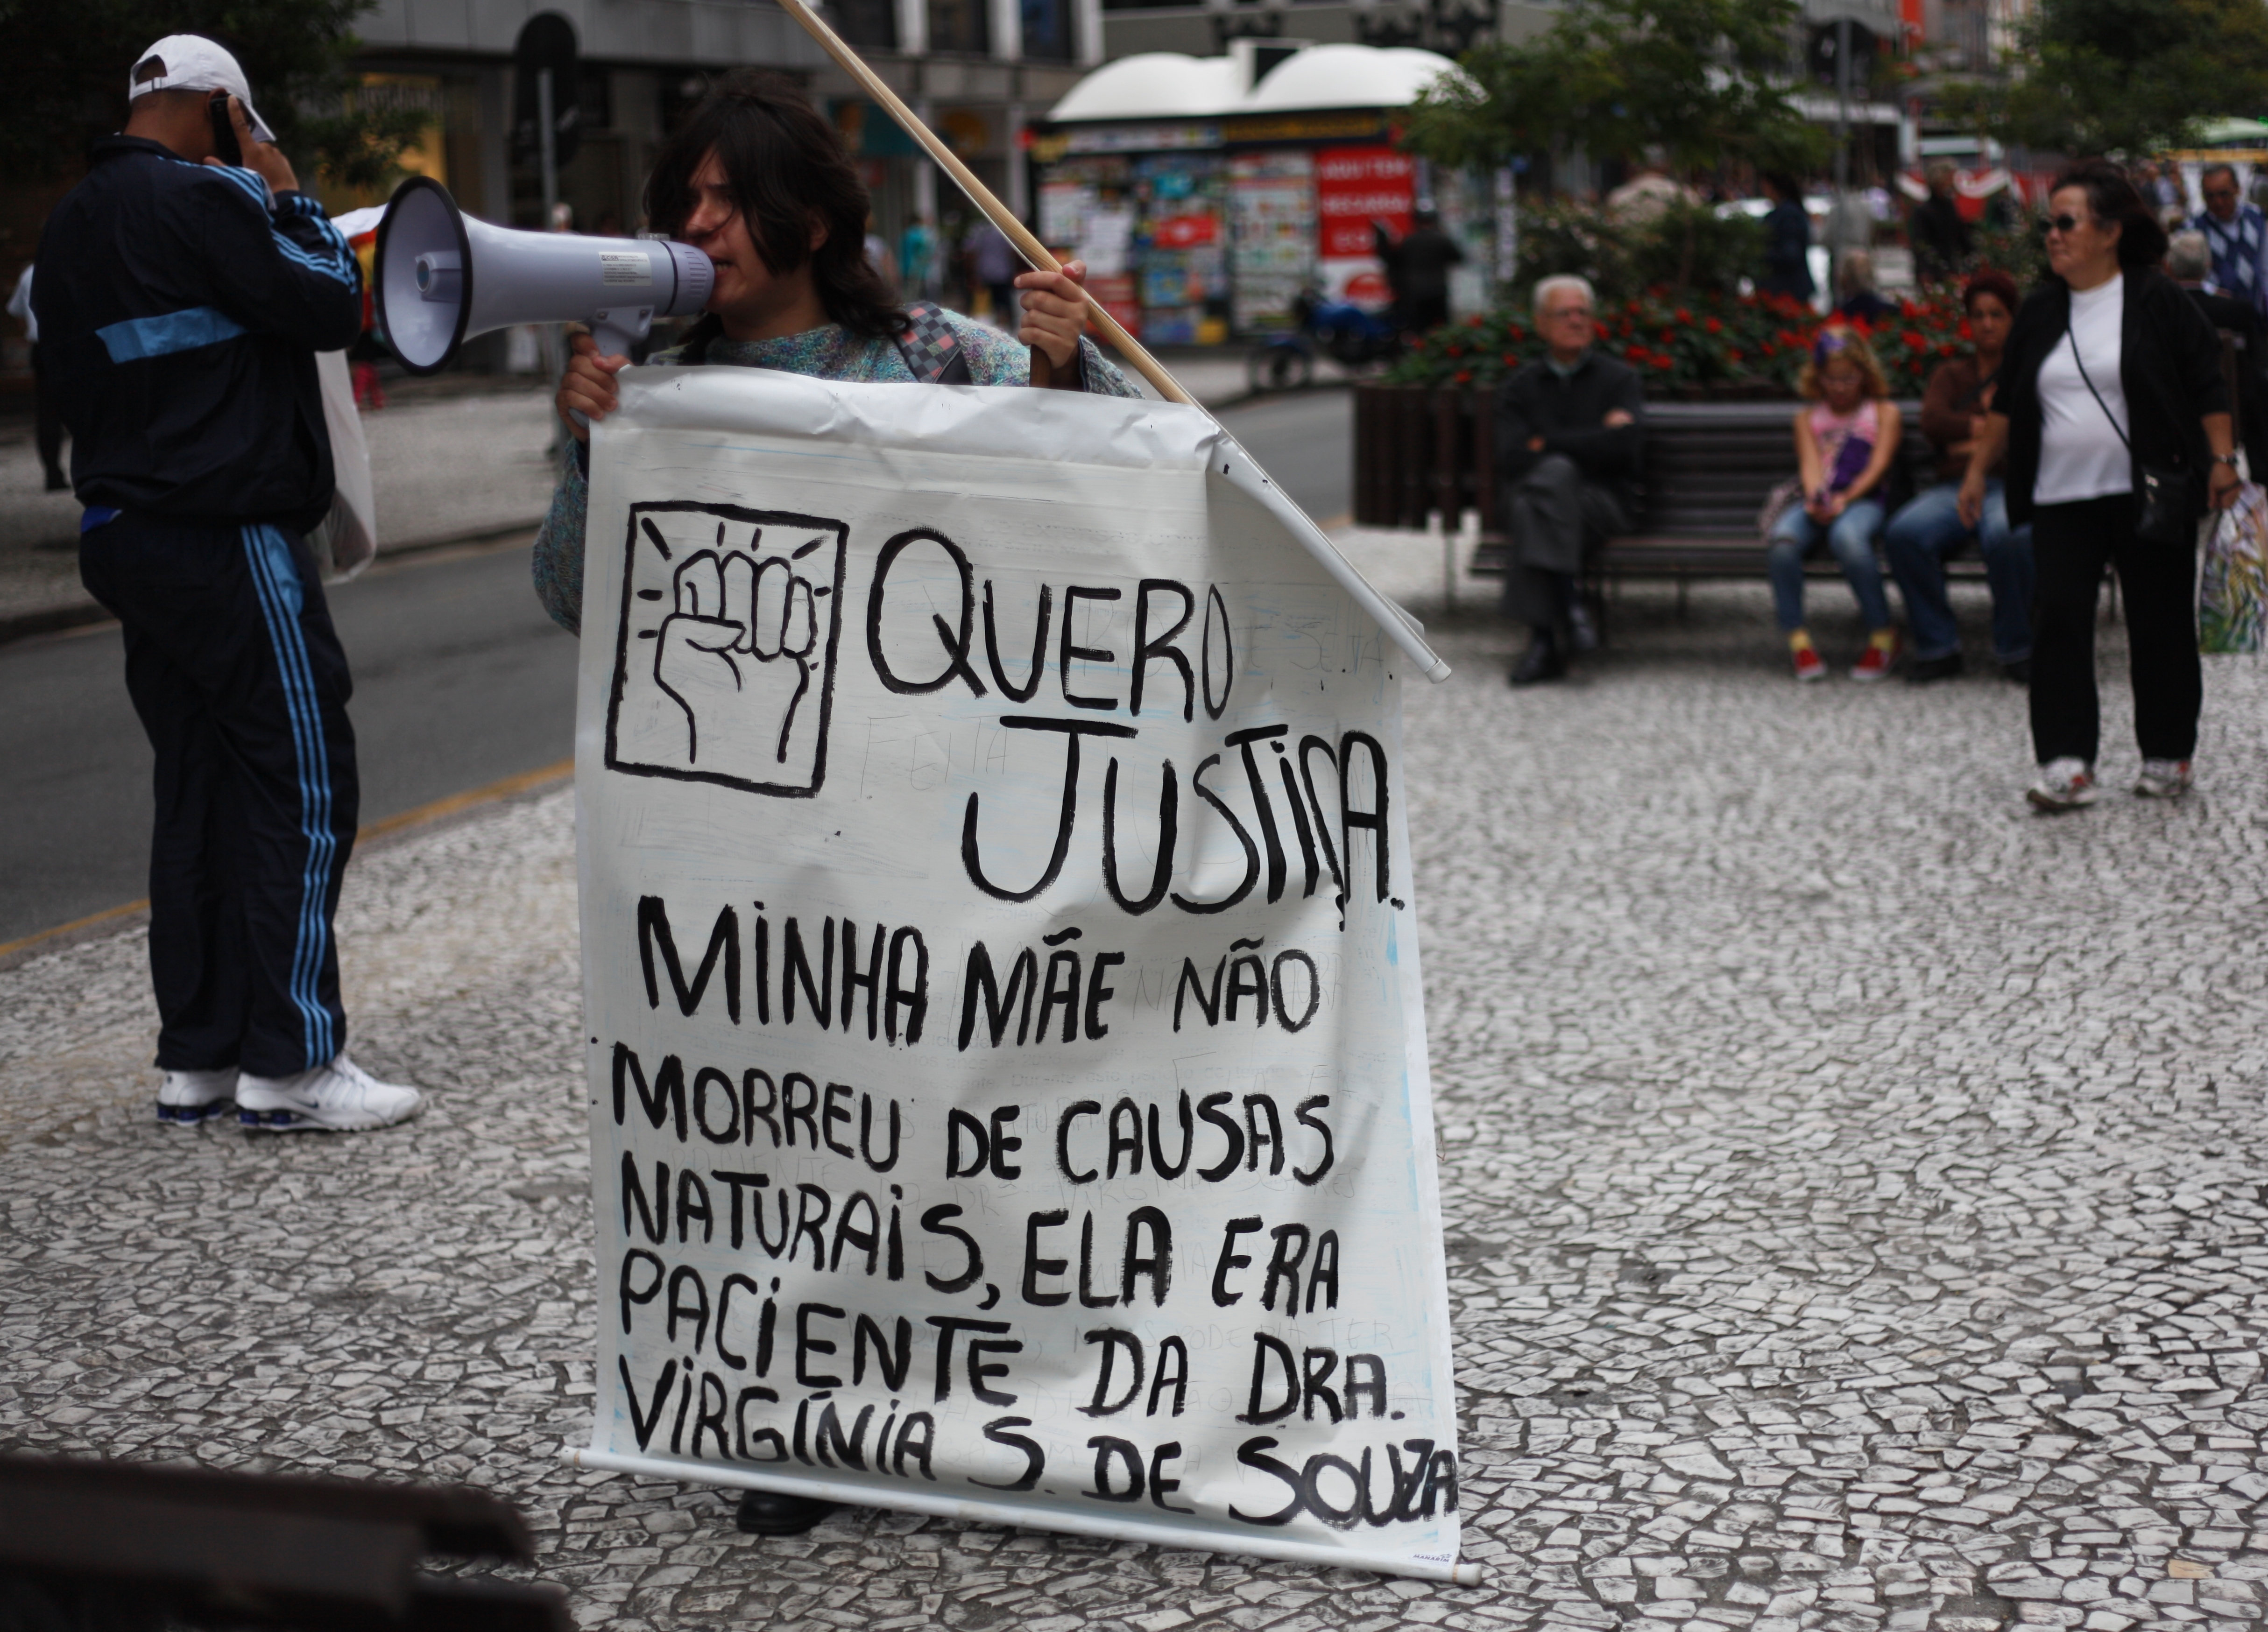 QUERO
JUSTIÇA.
MINHA MÃE NÃO
MORREU DE CAUSAS
NATURAIS, ELA ERA
PACIENTE DA DRA.
VIRGÍNIA S. DE SOUZA
FEITA
AQUI TEM